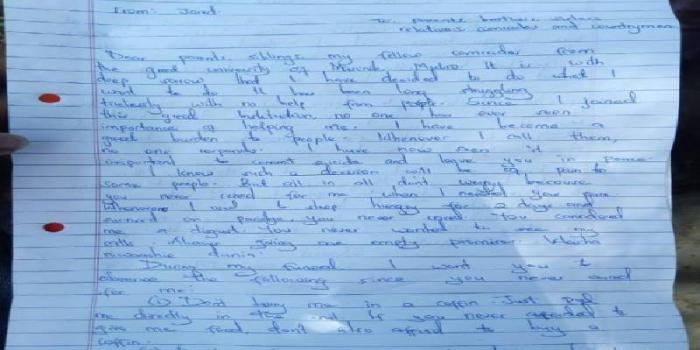 From: Jared
To: parents brothers sisters
relatives comrades and countrymen
Dear parents, siblings, my fellow comrades from
the great university of Masinde Muliro. It is with
deep sorrow that I have decided to do what I
want to do. It has been long struggling
with no help from people. Since I joined
this great institution, no one has ever seen
importance of helping me. I have become a
great burden to people. Whenever I call them,
no one responds. I have now seen it
important to commit suicide and leave you in peace.
I know such a decision will be of pain to
some people. But all in all don't weep because
you never cared for me when I needed you
Whenever I used to sleep hungry for 2 days and
survived on porridge, you never cared. You considered
me a You never wanted to see my
calls. Always giving me empty promises.
During my funeral I want you to
observe the following since you never cared
for me:
(i) Don't bring me in a coffin. Just
me directly in the and if you never afforded to
give me food, don't also afford to buy a
coffin.